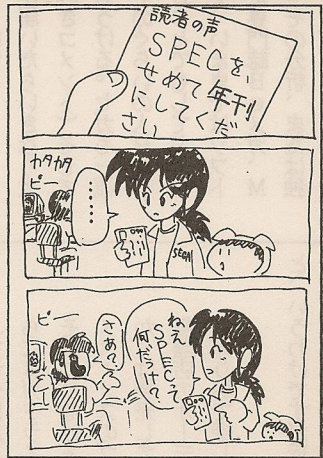 読者の声
SPECを、
せめて年刊
にしてくだ
さい
カタカタ
ピー
・・・・・・
SEGA
ピー
ねえ
SPECって
何だっけ?
さあ?